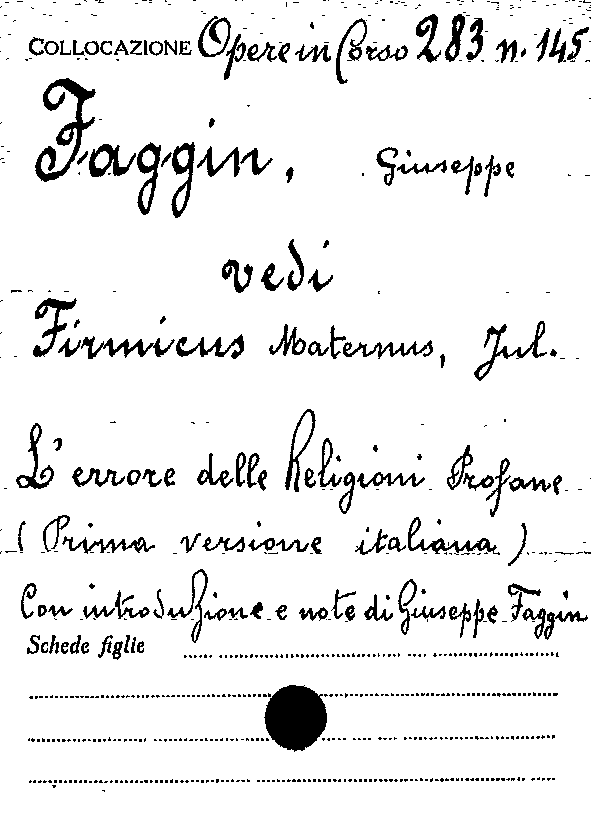 COLLOCAZIONE Opere in Corso 283 n. 145
Faggin, Giuseppe
vedi
Firmicus Maternus, Jul.
L'errore delle Religioni Profane
(Prima versione italiana)
Con introduzione e note di Giuseppe Faggin
Schede figlie